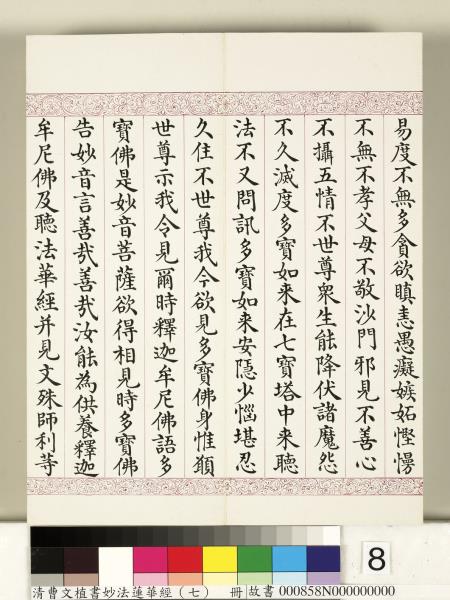 易度不無多貪欲瞋恚愚癡嫉妬慳慢
不無不孝父母不敬沙門邪見不善心
不攝五情不世尊衆生能降伏諸魔怨
不久滅度多寶如来在七寶塔中来聽
法不又問訊多寶如来安隱少惱堪忍
久住不世尊我今欲見多寶佛身惟願
世尊示我令見爾時釋迦牟尼佛語多
寶佛是妙音菩薩欲得相見時多寶佛
告妙音言善哉善哉汝能為供養釋迦
牟尼佛及聽法華經并見文殊師利等
8
清曹文植書妙法蓮華經(七) 冊 故書 000858N000000000